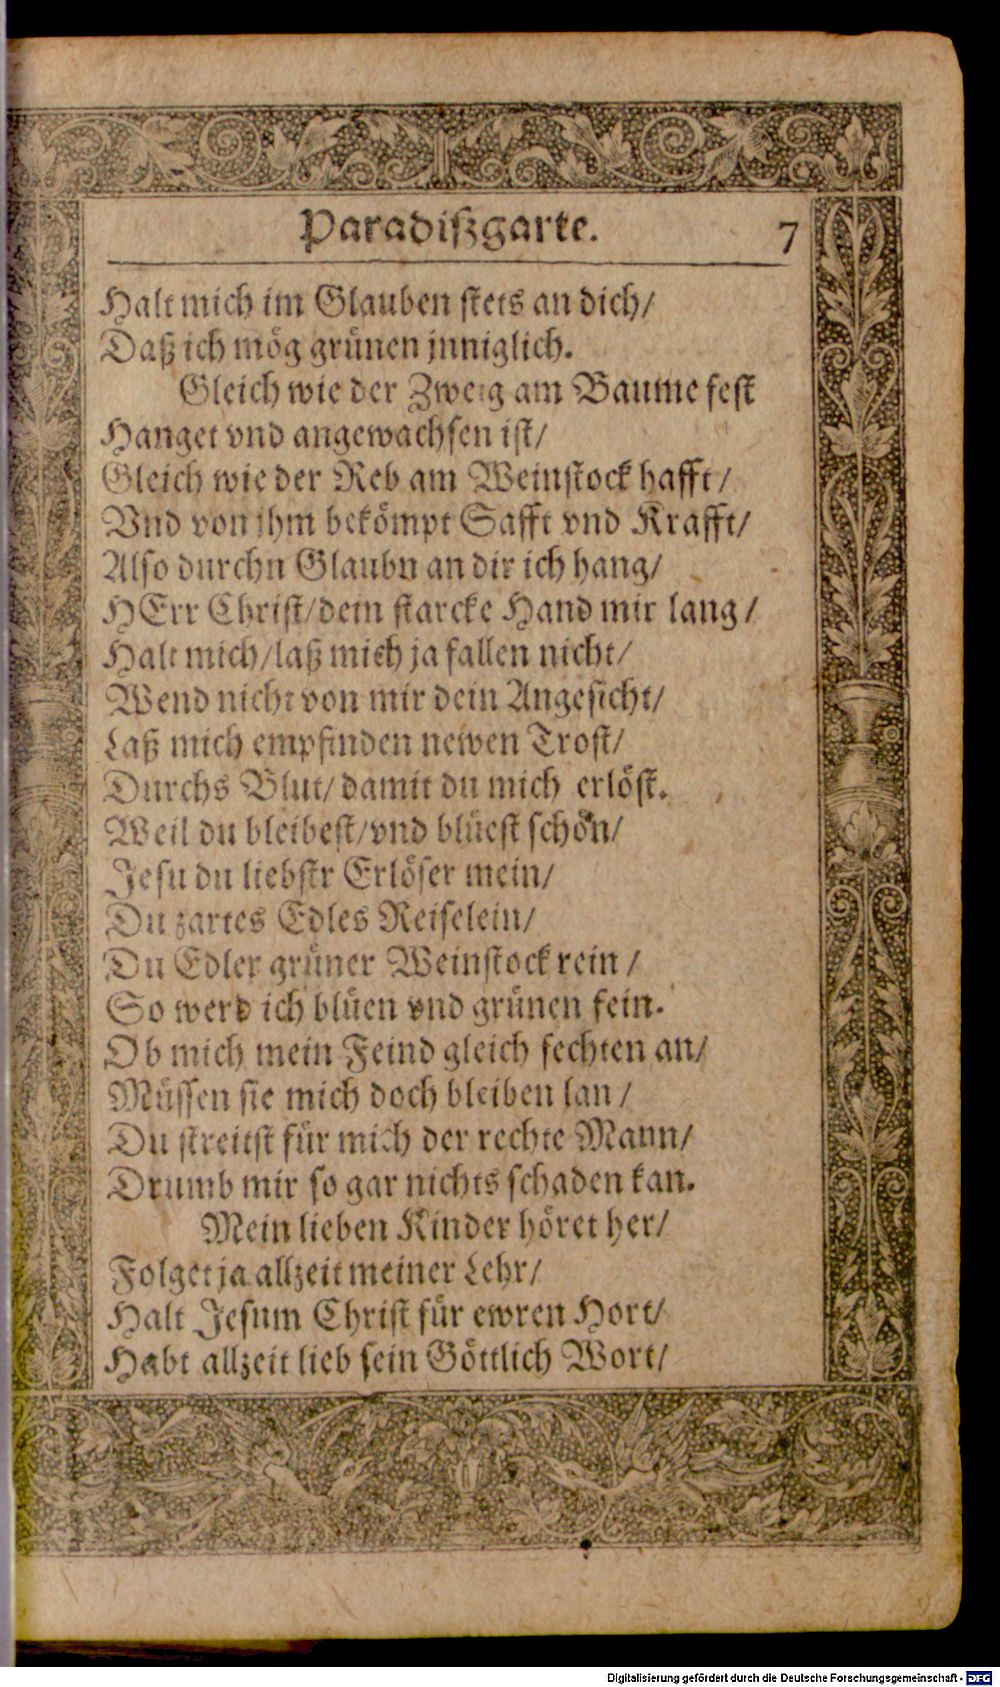 Paradiſzgarte. 7
Halt mich im Glauben ſtets an dich/
Daß ich mög grünen jnniglich.
Gleich wie der Zweig am Baume feſt
Hanget vnd angewachſen iſt/
Gleich wie der Reb am Weinſtock hafft/
Vnd von ihm bekömpt Safft vnd Krafft/
Alſo durchn Glaubn an dir ich hang/
HErr Chriſt/dein ſtarcke Hand mir lang/
Halt mich/laß mich ja fallen nicht/
Wend nicht von mir dein Angeſicht/
Laß mich empfinden newen Troſt/
Durchs Blut/ damit du mich erlöſt.
Weil du bleibeſt/vnd blüeſt ſchön/
Jeſu du liebſtr Erlöſer mein/
Du zartes Edles Reiſelein/
Du Edler grüner Weinſtock rein/
So werd ich blüen vnd grünen fein.
Ob mich mein Feind gleich fechten an/
Müſſen ſie mich doch bleiben lan/
Du ſtreitſt für mich der rechte Mann/
Drumb mir ſo gar nichts ſchaden kan.
Mein lieben Kinder höret her/
Folget ja allzeit meiner Lehr/
Halt Jeſum Chriſt für ewren Hort/
Habt allzeit lieb ſein Göttlich Wort/
Digitalisierung gefördert durch die Deutsche Forschungsgemeinschaft - DFG